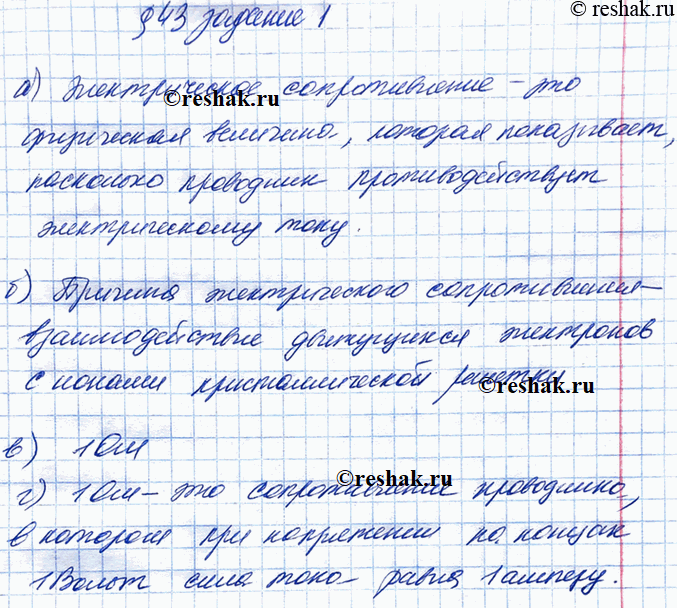 © reshak.ru
§43 задание 1
а) Электрическое сопротивление – это
©reshak.ru
физическая величина, которая показывает,
насколько проводник противодействует
электрическому току.
б) Причина электрического сопротивления –
взаимодействие движущихся электронов
с ионами кристаллической решетки
©reshak.ru
в) 1 Ом
©reshak.ru
г) 1 Ом – это сопротивление проводника,
в котором при напряжении на концах
1 Вольт сила тока равна 1 амперу.